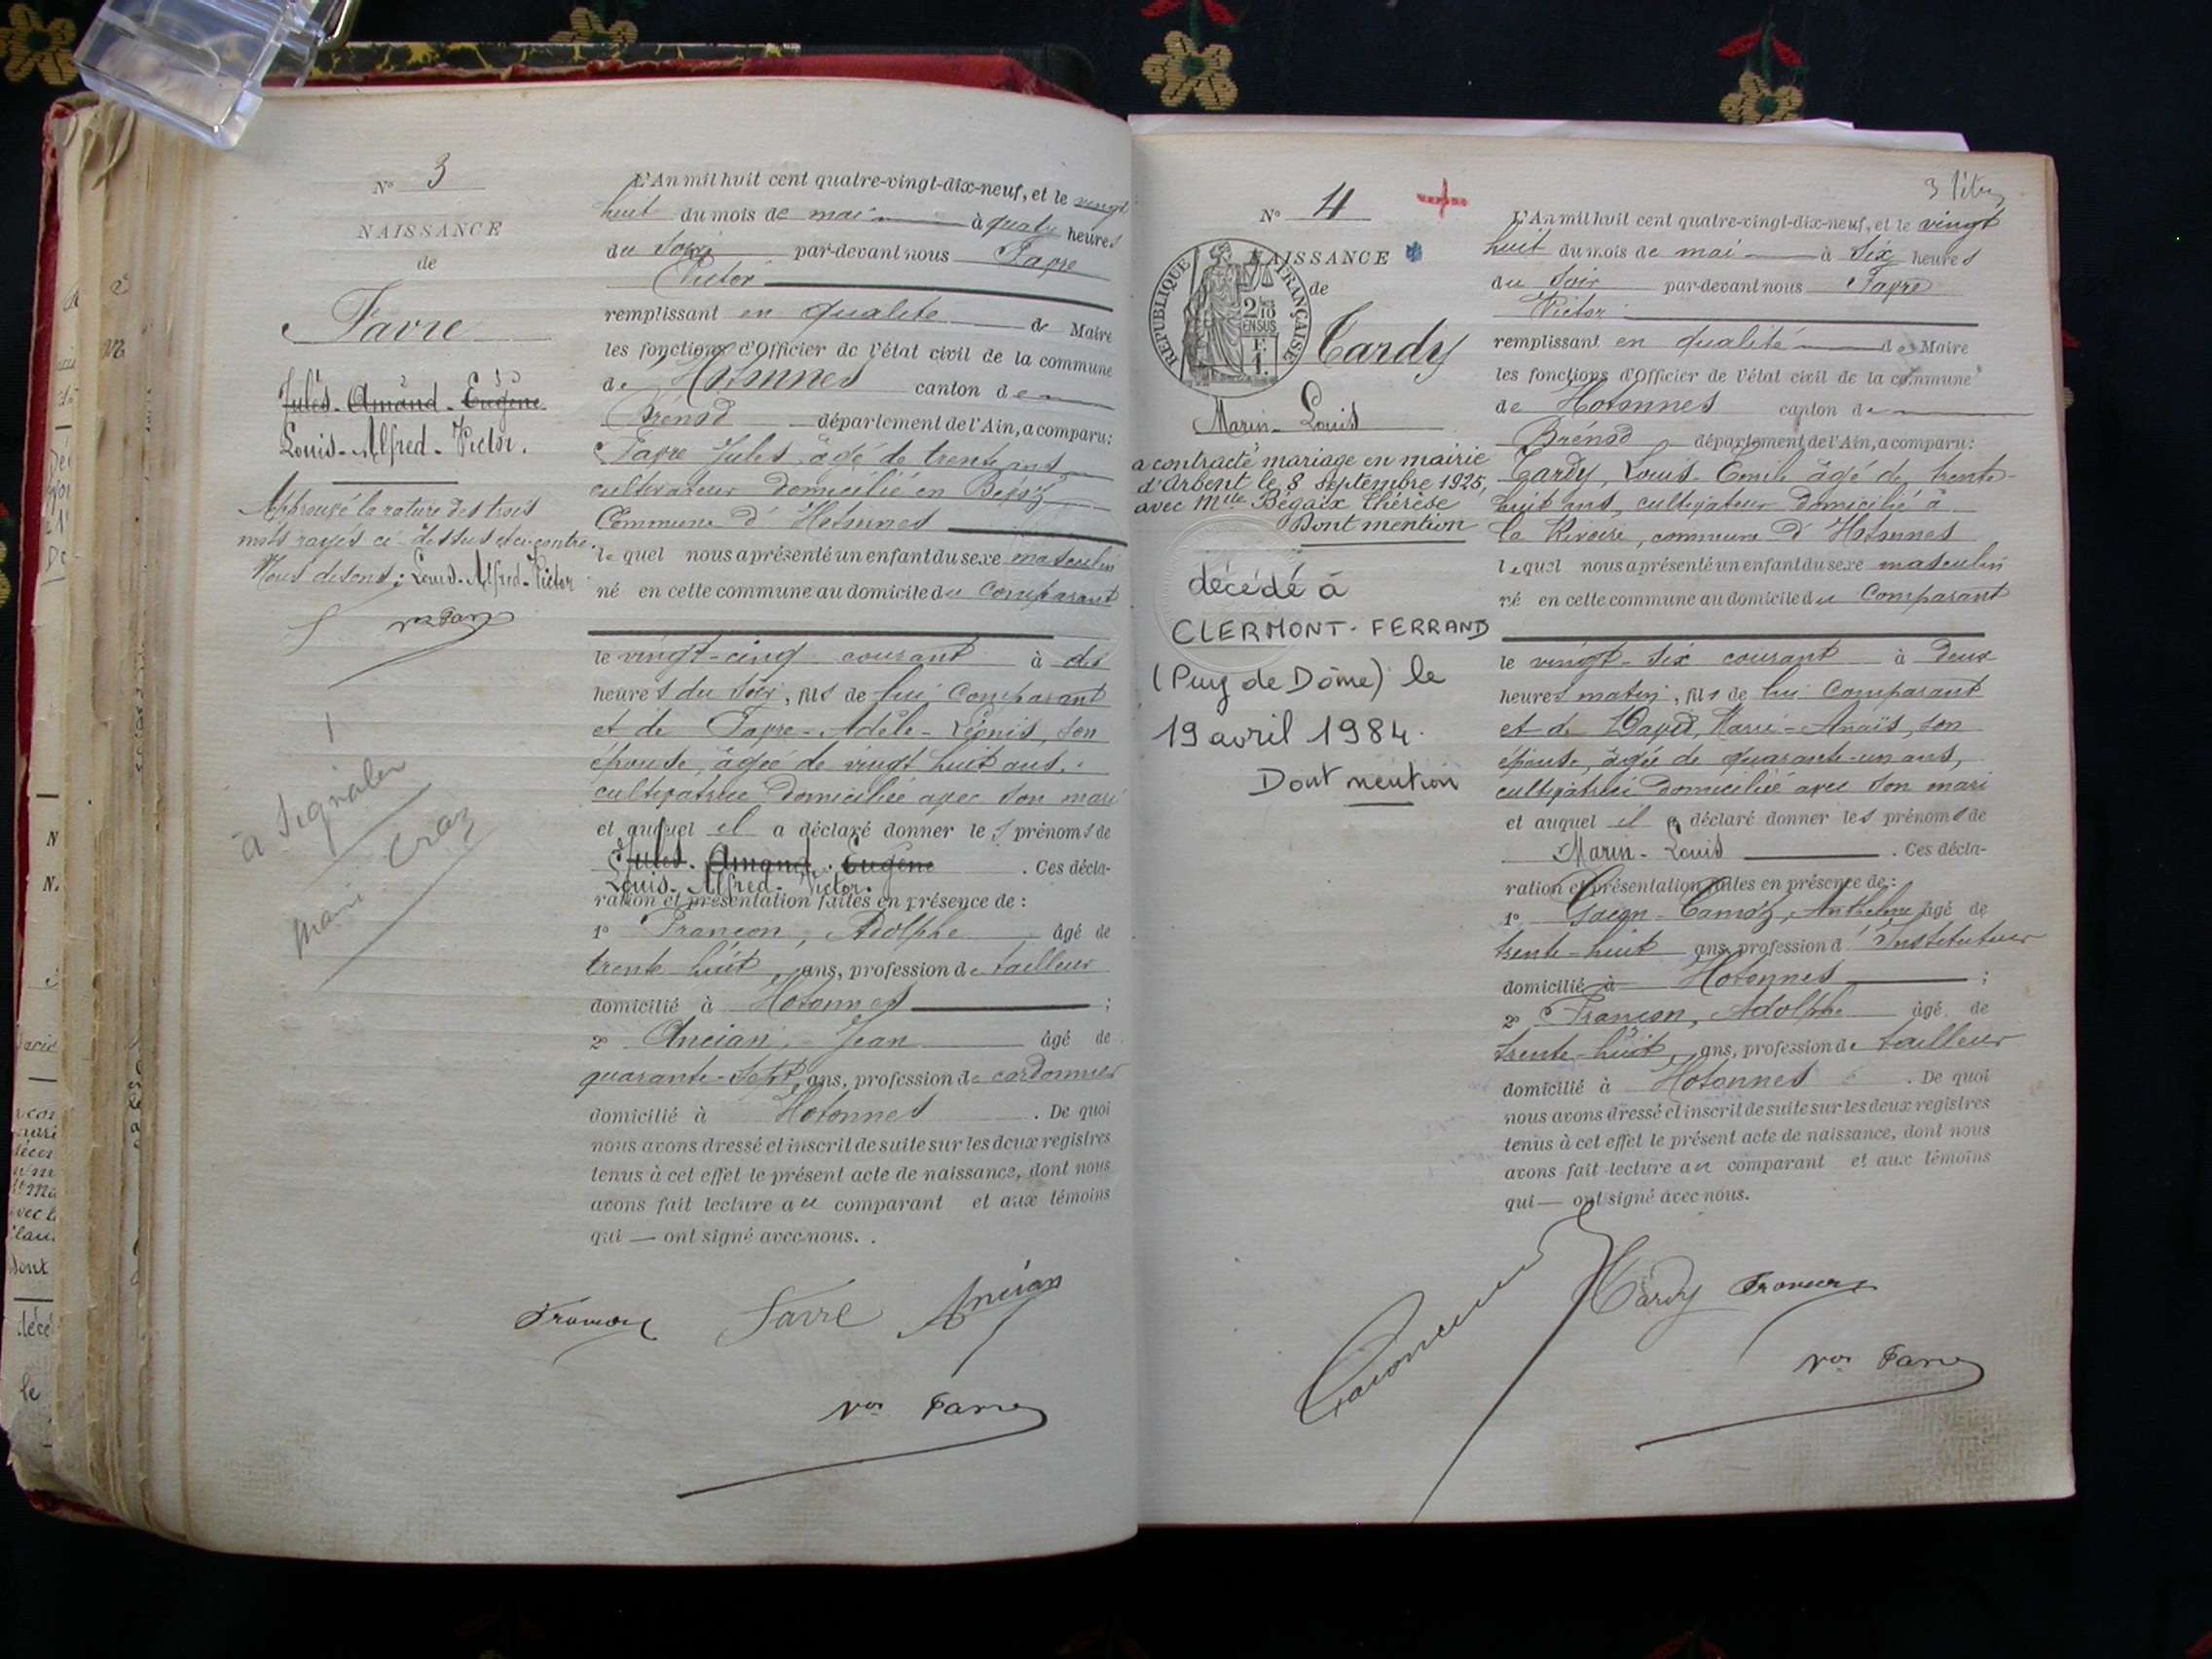 N° 3
NAISSANCE
de
Favre
Jules - Amand - Eugène
Louis - Alfred - Victor.
Approuvé la rature des trois
mots rayés ci-dessus et ci-contre.
Nous disons : Louis-Alfred-Victor
Vor Favre
à signaler
L'An mil huit cent quatre-vingt-dix-neuf, et le vingt
huit du mois de mai à quatre heures
du soir par-devant nous Favre
Victor
remplissant en qualité de Maire
les fonctions d'Officier de l'état civil de la commune
de Hotonnes canton de
Brénod département de l'Ain, a comparu :
Favre Jules, âgé de trente ans
cultivateur domicilié en
Commune d'Hotonnes
lequel nous a présenté un enfant du sexe masculin
né en cette commune au domicile du Comparant
le vingt-cinq courant à dix
heures du soir, fils de lui Comparant
et de Favre - Adèle - Léonis, son
épouse, âgée de vingt huit ans.
cultivatrice domiciliée avec son mari
et auquel il a déclaré donner les prénoms de
Jules - Amand - Eugène . Ces décla-
Louis - Alfred - Victor.
ration et présentation faites en présence de :
1° Françon, Adolphe âgé de
trente huit ans, profession de tailleur
domicilié à Hotonnes ;
2° Ancian, Jean âgé de
quarante-sept ans, profession de cordonnier
domicilié à Hotonnes . De quoi
nous avons dressé et inscrit de suite sur les deux registres
tenus à cet effet le présent acte de naissance, dont nous
avons fait lecture au comparant et aux témoins
qui — ont signé avec nous.
Françon Favre Ancian
Vor Favre
N° 4
NAISSANCE
de
REPUBLIQUE FRANÇAISE
Tardy
Marin - Louis
a contracté mariage en mairie
d'Arbent le 8 septembre 1925,
avec Mlle Bégaix Thérèse
Dont mention
décédé à
CLERMONT-FERRAND
(Puy de Dôme) le
19 avril 1984.
Dont mention
L'An mil huit cent quatre-vingt-dix-neuf, et le vingt
huit du mois de mai à six heures
du soir par-devant nous Favre
Victor
remplissant en qualité de Maire
les fonctions d'Officier de l'état civil de la commune
de Hotonnes canton de
Brénod département de l'Ain, a comparu :
Tardy, Louis-Emile âgé de trente-
huit ans, cultivateur domicilié à
la Rivoire, commune d'Hotonnes
lequel nous a présenté un enfant du sexe masculin
né en cette commune au domicile du Comparant
le vingt-six courant à deux
heures matin, fils de lui Comparant
et de David, Marie-Anaïs, son
épouse, âgée de quarante-un ans,
cultivatrice domiciliée avec son mari
et auquel il a déclaré donner les prénoms de
Marin - Louis . Ces décla-
ration et présentation faites en présence de :
1° Anthelme âgé de
trente-huit ans, profession d'Instituteur
domicilié à Hotonnes ;
2° Françon, Adolphe âgé de
trente-huit ans, profession de tailleur
domicilié à Hotonnes . De quoi
nous avons dressé et inscrit de suite sur les deux registres
tenus à cet effet le présent acte de naissance, dont nous
avons fait lecture au comparant et aux témoins
qui — ont signé avec nous.
Tardy Françon
Vor Favre